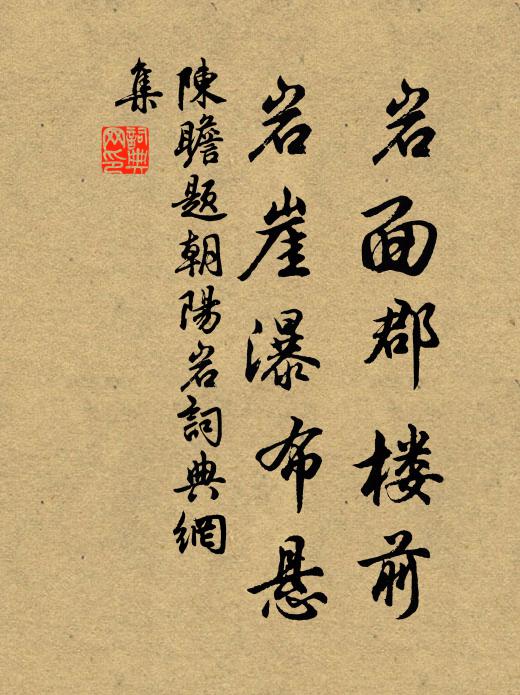 岩面郡楼前
岩崖瀑布悬
陳瞻题朝陽岩詞典網
集
詞典网印